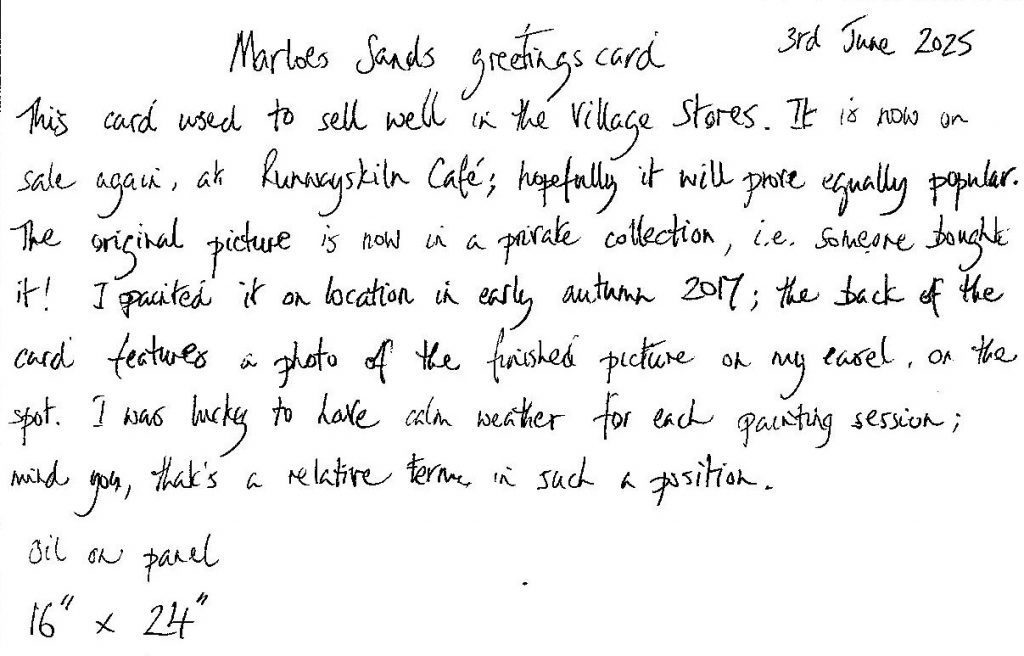 Marloes Sands greetings card 3rd June 2025
This card used to sell well in the Village Stores. It is now on
sale again, at Runwayskiln Café; hopefully it will prove equally popular.
The original picture is now in a private collection, i.e. someone bought
it! I painted it on location in early autumn 2017; the back of the
card features a photo of the finished picture on my easel, on the
spot. I was lucky to have calm weather for each painting session;
mind you, that's a relative term, in such a position.
Oil on panel
16" x 24"